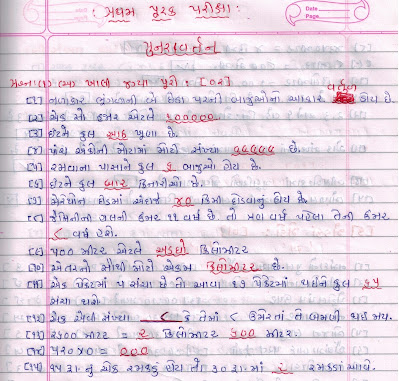 : પ્રથમ પૂરક પરીક્ષા :
Date
Page
પુનરાવર્તન
પ્રશ્ન:(૧) (અ) ખાલી જગ્યા પૂરો : [૦૨]
વર્તુળ
[૧] નળાકાર ભુંગળાની બે છેડા પરની બાજુઓનો આકાર હોય છે.
[૨] એક સો હજાર એટલે ૧૦૦૦૦૦
[૩] ઇંટને કુલ આઠ ખૂણા છે.
[૪] પાંચ અંકોની મોટામાં મોટી સંખ્યા ૯૯૯૯૯ છે.
[૫] રમવાના પાસાને કુલ ૬ બાજુઓ હોય છે.
[૬] ઇંટને કુલ બાર કિનારીઓ છે.
[૭] મેરેથોન દોડમાં અંદાજે ૪૦ કિમી દોડવાનું હોય છે.
[૮] જૈમિનીની હાલની ઉંમર ૧૧ વર્ષ છે. તો ત્રણ વર્ષ પહેલા તેની ઉંમર
૮ વર્ષ હશે.
[૯] ૫૦૦ મીટર એટલે અડધો કિલોમીટર
[૧૦] અંતરનો સૌથી મોટો એકમ કિલોમીટર છે.
[૧૧] એક પેકેટમાં ૫ સંચા છે તો આવા ૧૩ પેકેટમાં થઈને કુલ ૬૫
સંચા થશે.
[૧૨] એક એવી સંખ્યા ૮ કે તેમાં ૮ ઉમેરતાં તે બમણી થઈ જાય.
[૧૩] ૨૬૦૦ મીટર = ૨ કિલોમીટર ૬૦૦ મીટર.
[૧૪] ૫૨૦ x ૦ = ૦૦૦
[૧૫] ૧૫ રૂા. નું એક રમકડું હોય તો ૩૦ રૂા. માં ૨ રમકડાં આવે.